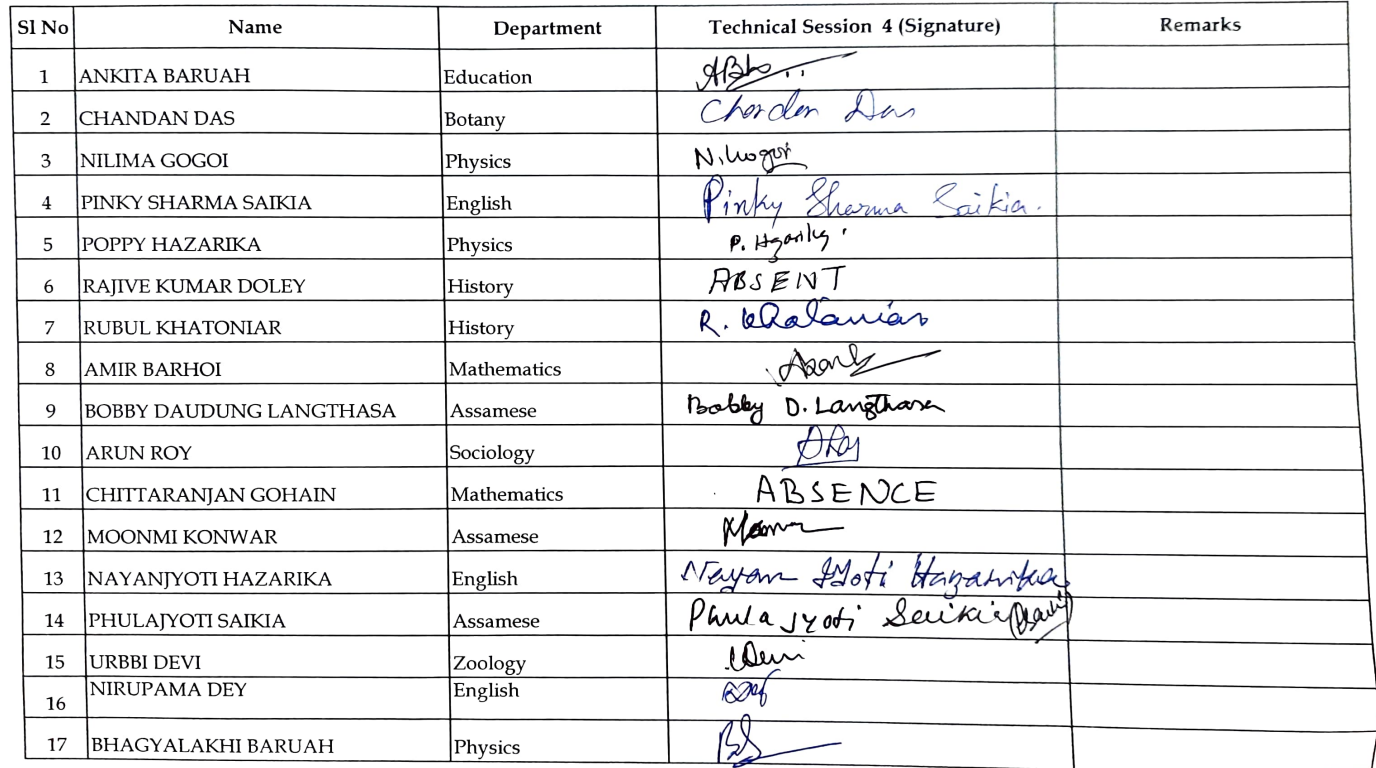 Sl No Name Department Technical Session 4 (Signature) Remarks
1 ANKITA BARUAH Education
2 CHANDAN DAS Botany Chandan Das
3 NILIMA GOGOI Physics N. Gogoi
4 PINKY SHARMA SAIKIA English Pinky Sharma Saikia.
5 POPPY HAZARIKA Physics P. Hazarika
6 RAJIVE KUMAR DOLEY History ABSENT
7 RUBUL KHATONIAR History R. Khataniar
8 AMIR BARHOI Mathematics
9 BOBBY DAUDUNG LANGTHASA Assamese Bobby D. Langthasa
10 ARUN ROY Sociology ARoy
11 CHITTARANJAN GOHAIN Mathematics ABSENCE
12 MOONMI KONWAR Assamese
13 NAYANJYOTI HAZARIKA English Nayan Jyoti Hazarika
14 PHULAJYOTI SAIKIA Assamese Phula Jyoti Saikia
15 URBBI DEVI Zoology UDevi
16 NIRUPAMA DEY English
17 BHAGYALAKHI BARUAH Physics